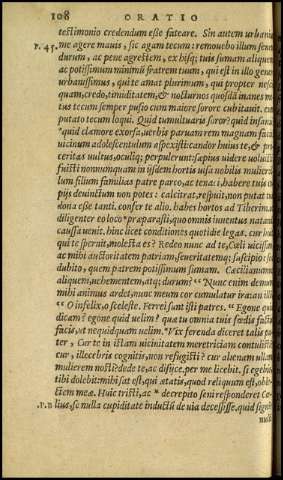 108 ORATIO
testimonio credendum esse fateare. Sin autem urbaniùs
P. 45. me agere mauis, sic agam tecum: remouebo illum senem
durum, ac penè agrestem, ex hisq; tuis sumam aliquem
ac potissimum minimũ fratrem tuum, qui est in illo genere
urbanissimus, qui te amat plurimum, qui propter nescio
quam, credo, timiditatem, & nocturnos quosdã inanes me
tus tecum semper pusio cum maiore sorore cubitauit. eum
putato tecum loqui. Quid tumultuaris soror? quid insanis
quid clamore exorsa, uerbis paruam rem magnam facis?
uicinum adolescentulum aspexisti: candor huius te, & pro
ceritas uultus, oculiq; perpulerunt: sæpius uidere uoluisti:
fuisti nonnumquam in ijsdem hortis: uis nobilis mulier il
lum filium familias patre parco, ac tenaci, habere tuis co
pijs deuinctum non potes: calcitrat, respuit, non putat tua
dona esse tanti. confer te alio. habes hortos ad Tiberim ac
diligenter eo loco præparasti, quo omnis iuuentus natandi
caussa uenit. hinc licet conditiones quotidie legas. cur huic,
qui te spernit, molesta es? Redeo nunc ad te, Cœli uicissim,
ac mihi auctoritatem patriam, seueritatemq; suscipio: sed
dubito, quem patrem potissimum sumam. Cæcilianumne
aliquem, uehementem, atq; durum? Nunc enim demum
mihi animus ardet, nunc meum cor cumulatur ira: an illum
O infelix, o sceleste. Ferrei sunt isti patres. Egone quid
dicam? egone quid uelim? quæ tu omnia tuis fœdis factis
facis, ut nequidquam uelim. Vix ferenda diceret talis pa
ter, Cur te in istam uicinitatem meretriciam contulisti?
cur, illecebris cognitis, non refugisti? cur alienam ullam
mulierem nosti? dede te, ac disijce, per me licebit. si egebis,
tibi dolebit: mihi sat est, qui ætatis, quod reliquum est, oble
ctem meæ. Huic tristi, ac decrepito seni responderet Cæ
P. B lius, se nulla cupiditate inductũ de uia decessisse. quid signi